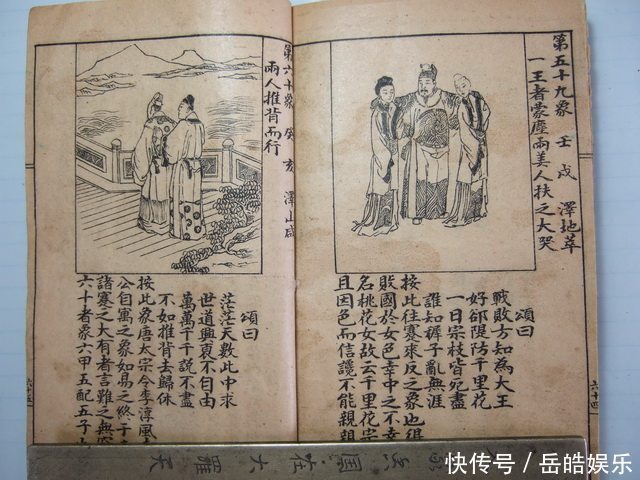 第五十九象 壬戌 澤地萃
一王者蒙塵兩美人扶之大哭
頌曰
戰敗方知為大王
好郤隄防千里花
一日宗枝皆死盡
誰知褲子亂無涯
按此往蹇來反之象也
敗國於女色幸中之不幸
名桃花女故云千里花宗
且因色而信讒不能親親
六十四
第六十象 癸亥 澤山咸
兩人推背而行
頌曰
茫茫天數此中求
世道興衰不自由
萬萬千千說不盡
不如推背去歸休
按此象唐太宗令李淳風
公自寓之象如易之終于
諸蹇之大有者言雖之無
六十者象六甲五配五子
六十五
天羅大在國
快传号/岳皓娱乐